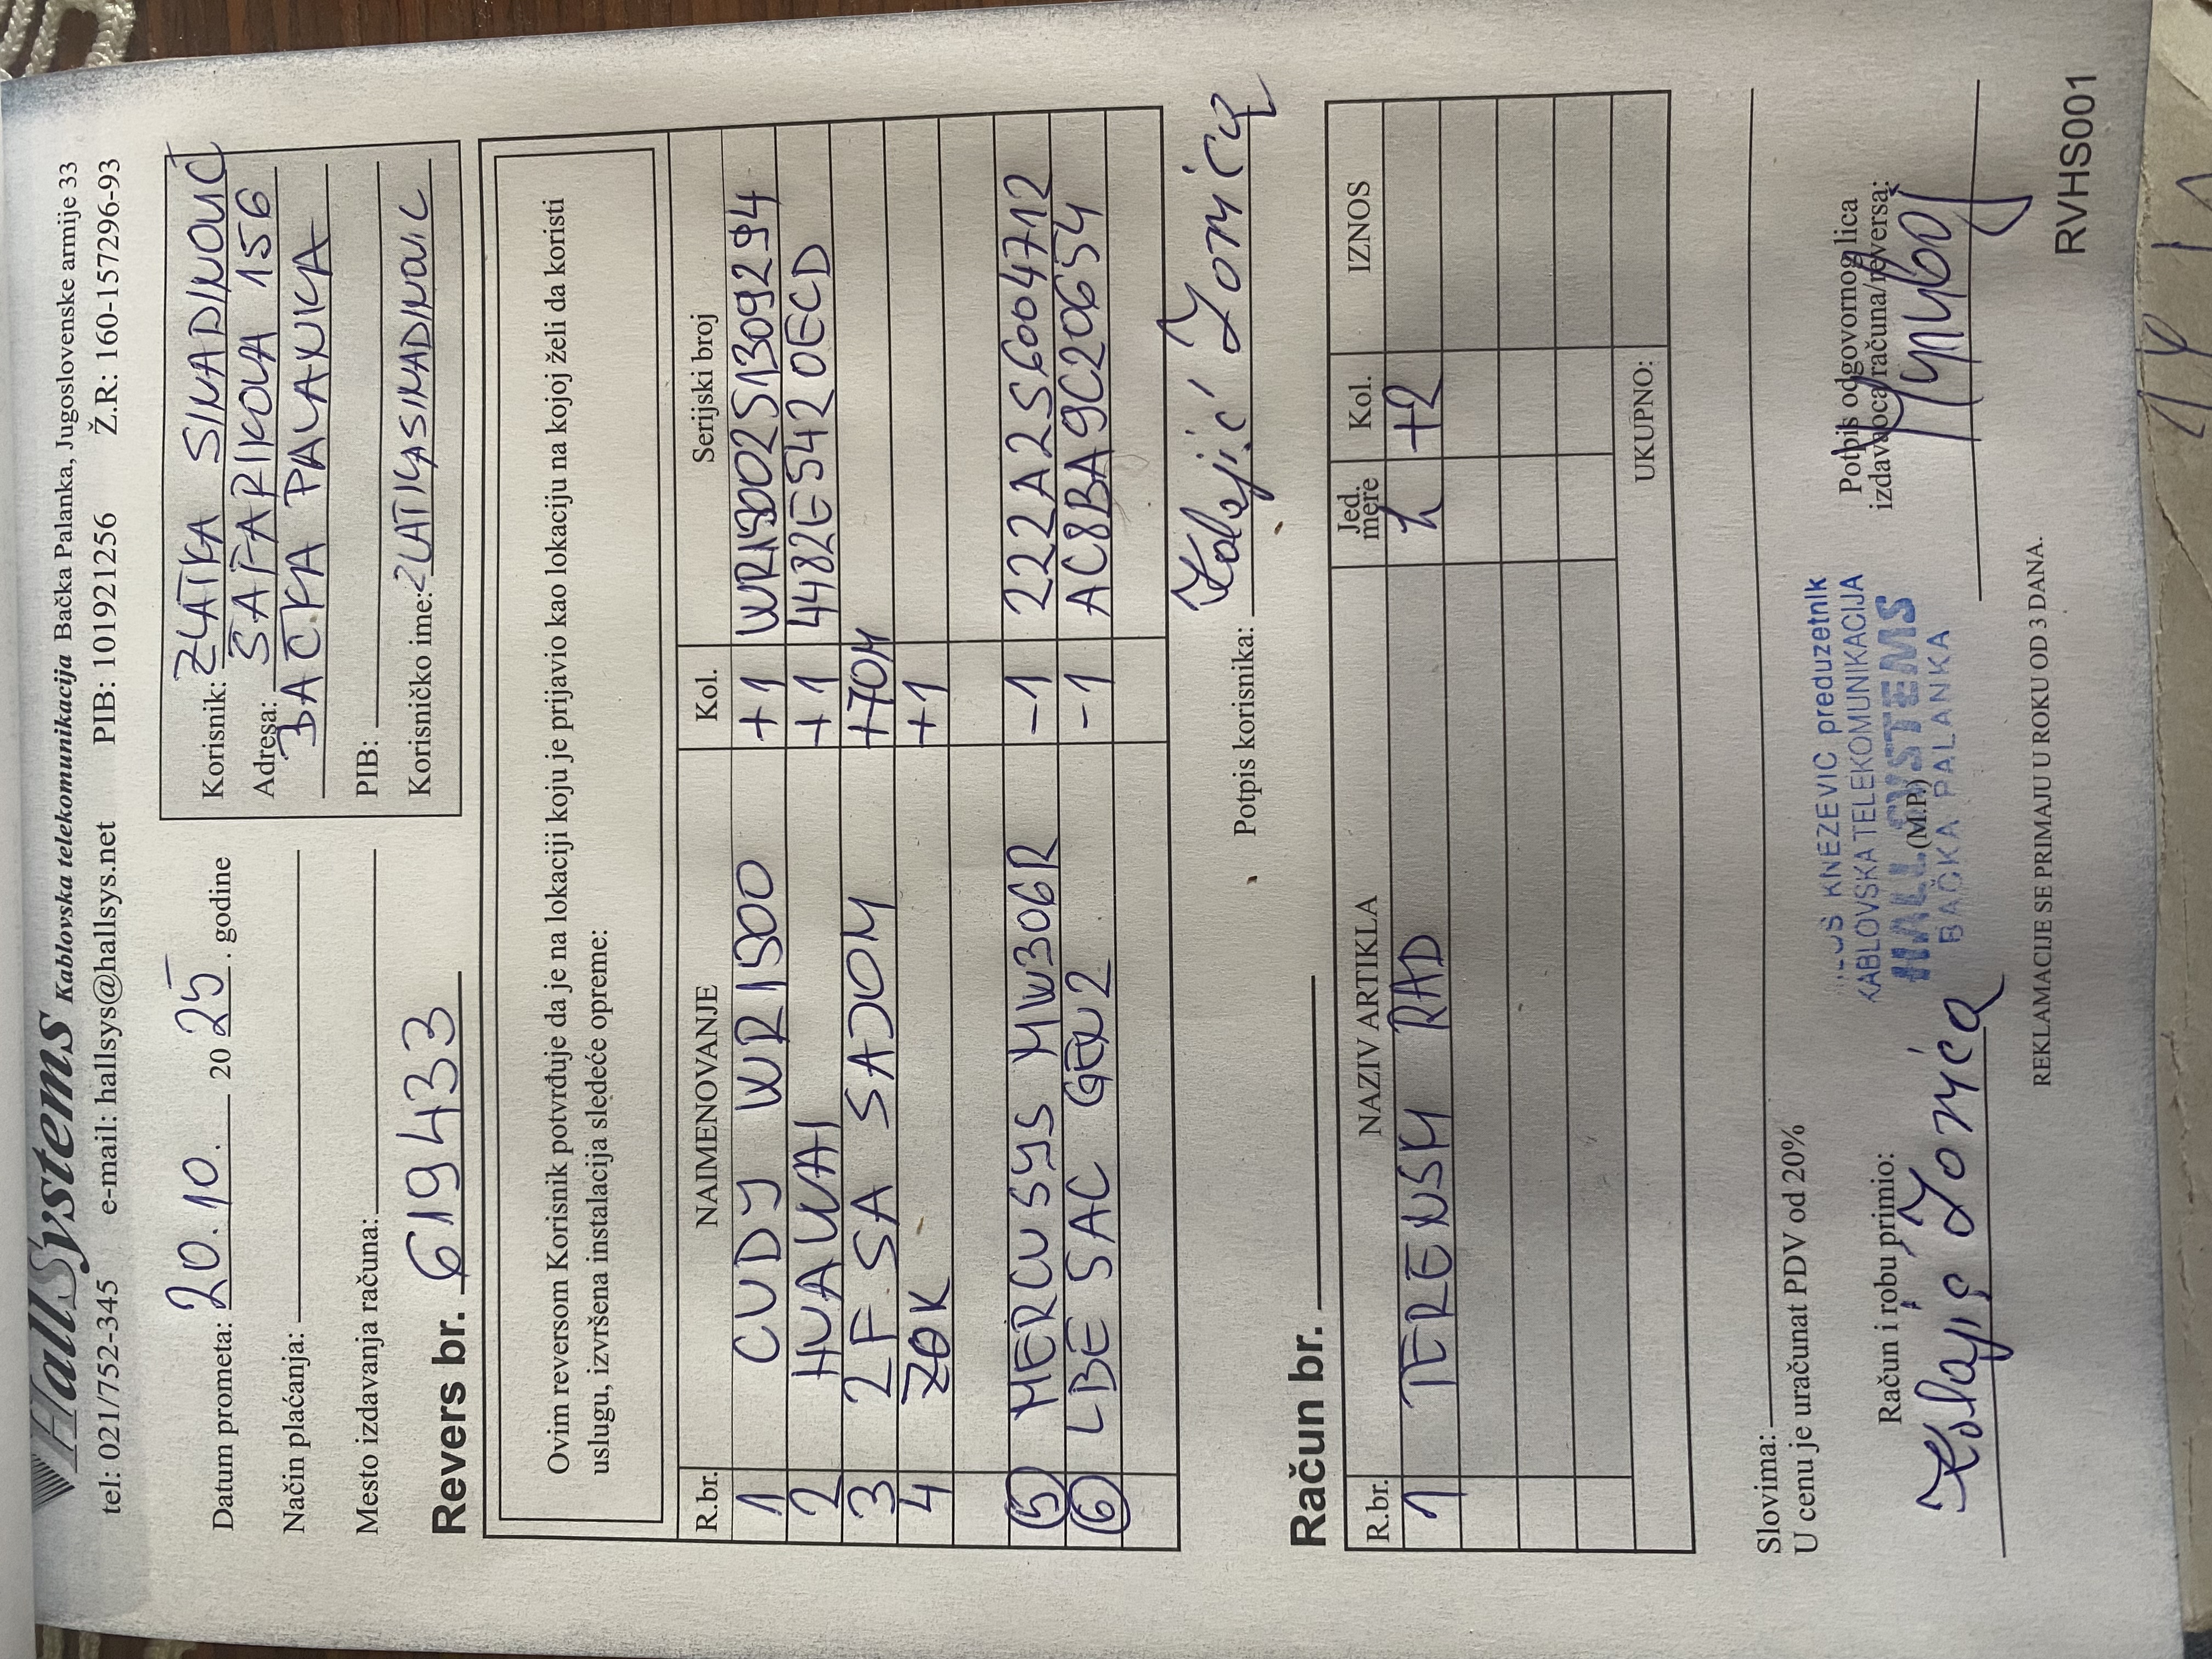 HallSystems Kablovska telekomunikacija Bačka Palanka, Jugoslovenske armije 33
tel: 021/752-345 e-mail: hallsys@hallsys.net PIB: 101921256 Ž.R: 160-157296-93
Datum prometa: 20.10. 2025. godine
Način plaćanja:
Mesto izdavanja računa:
Korisnik: ZLATKA SIMADINOVIĆ
Adresa: ŠAFARIKOVA 156
BAČKA PALANKA
PIB:
Korisničko ime: ZLATIKASIMADINOVIC
Revers br. 619433
Ovim reversom Korisnik potvrđuje da je na lokaciji koju je prijavio kao lokaciju na kojoj želi da koristi
uslugu, izvršena instalacija sledeće opreme:
R.br. NAIMENOVANJE Kol. Serijski broj
1 CUDY WR1300 +1
2 HUAWAI +1 4482E5420ECD
3 2F SA SAJOM +70M
4 ZOK +1
5 MERCUSYS MW306R -1 222A2S6004712
6 LBE 5AC GEN2 -1 AC8BA9C20654
Potpis korisnika:
Račun br.
R.br. NAZIV ARTIKLA Jed. mere Kol. IZNOS
1 TERENSKI RAD h +2
UKUPNO:
Slovima:
U cenu je uračunat PDV od 20%
Račun i robu primio:
KNEZEVIC preduzetnik
KABLOVSKA TELEKOMUNIKACIJA
HALL SYSTEMS
(M.P.)
BAČKA PALANKA
Potpis odgovornog lica
izdavaoca računa/reversa:
REKLAMACIJE SE PRIMAJU U ROKU OD 3 DANA.
RVHS001